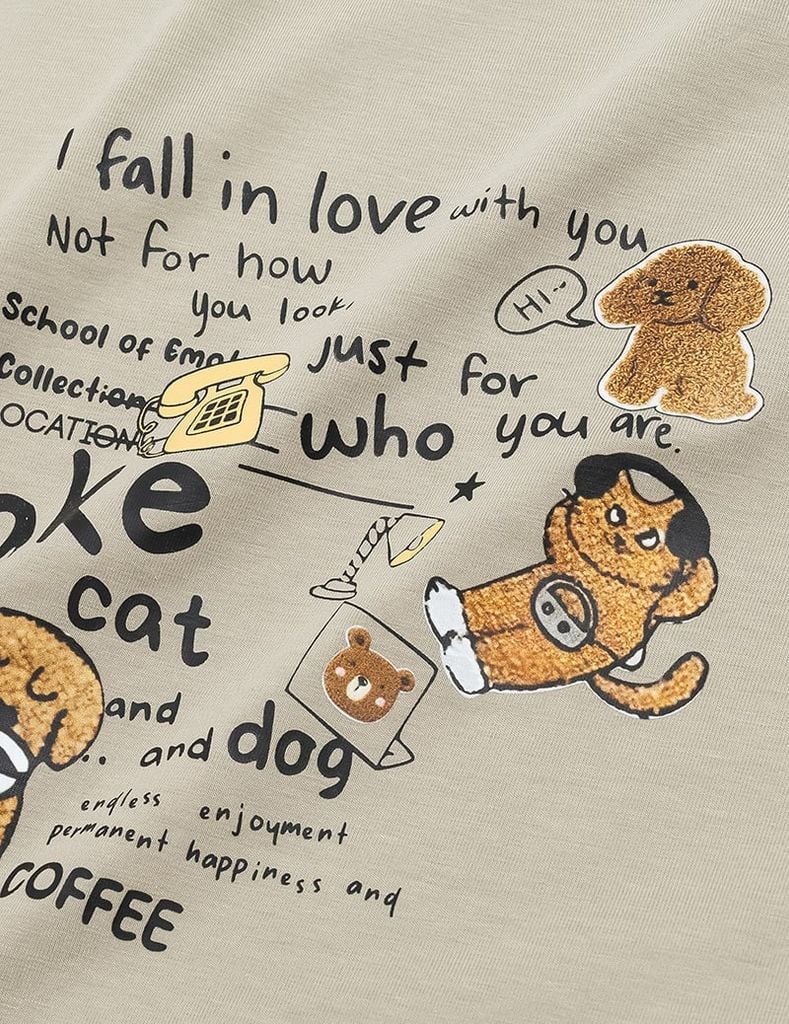 I fall in love with you
Not for how
you look,
HI!
School of Emo
just for
Collection
who you are.
LOCATION
oke
cat
and
.. and dog
endless enjoyment
permanent happiness and
COFFEE